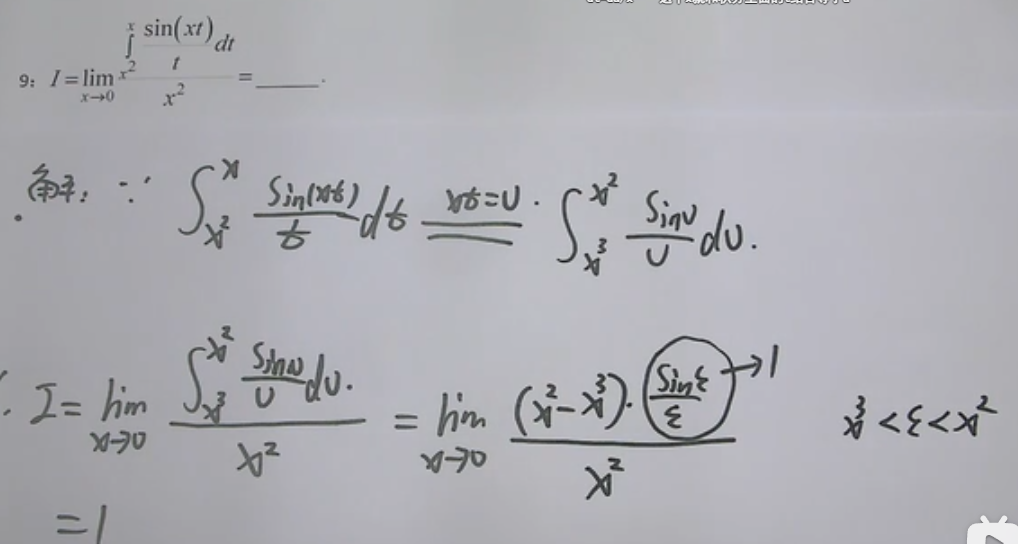 9: I = lim_{x→0} \frac{∫_{x^2}^{x} \frac{sin(xt)}{t} dt}{x^2} = ____.
解: ∵ ∫_{x^2}^{x} \frac{Sin(xt)}{t} dt \xlongequal{xt=U} ∫_{x^3}^{x^2} \frac{SinU}{U} dU.
I = lim_{x→0} \frac{∫_{x^3}^{x^2} \frac{SinU}{U} dU.}{x^2} = lim_{x→0} \frac{(x^2-x^3)·\frac{Sinξ}{ξ}}{x^2} →1 x^3<ξ<x^2
=1